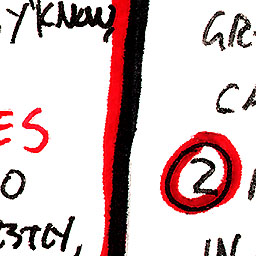 Y'KNOW,
ES
O
ESTLY,
GR
CA
2
IN